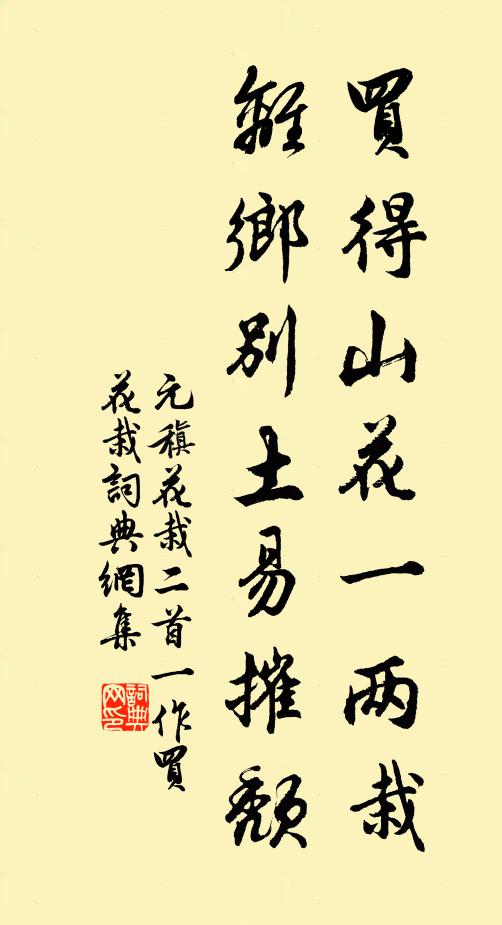 買得山花一两栽
離鄉別土易摧頹
元稹花栽二首一作買
花栽詞典網集
詞典网印